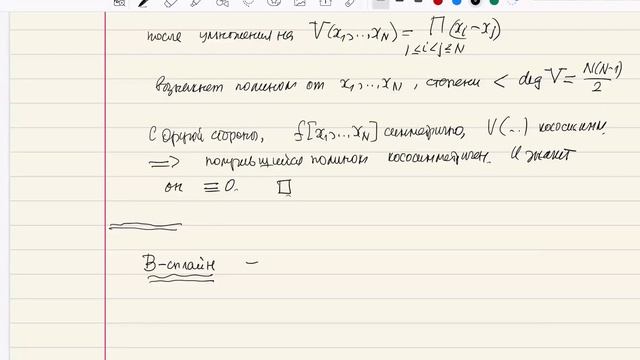 после умножения на V(x₁,...,x_N) = ∏ (xᵢ-xⱼ)
1≤i<j≤N
возникнет полином от x₁,...,x_N, степени < deg V = N(N-1)/2
С другой стороны, f[x₁,...,x_N] симметрично, V(...) кососимм.
⟹ получившийся полином кососимметричен. И значит
он ≡ 0. □
B-сплайн —